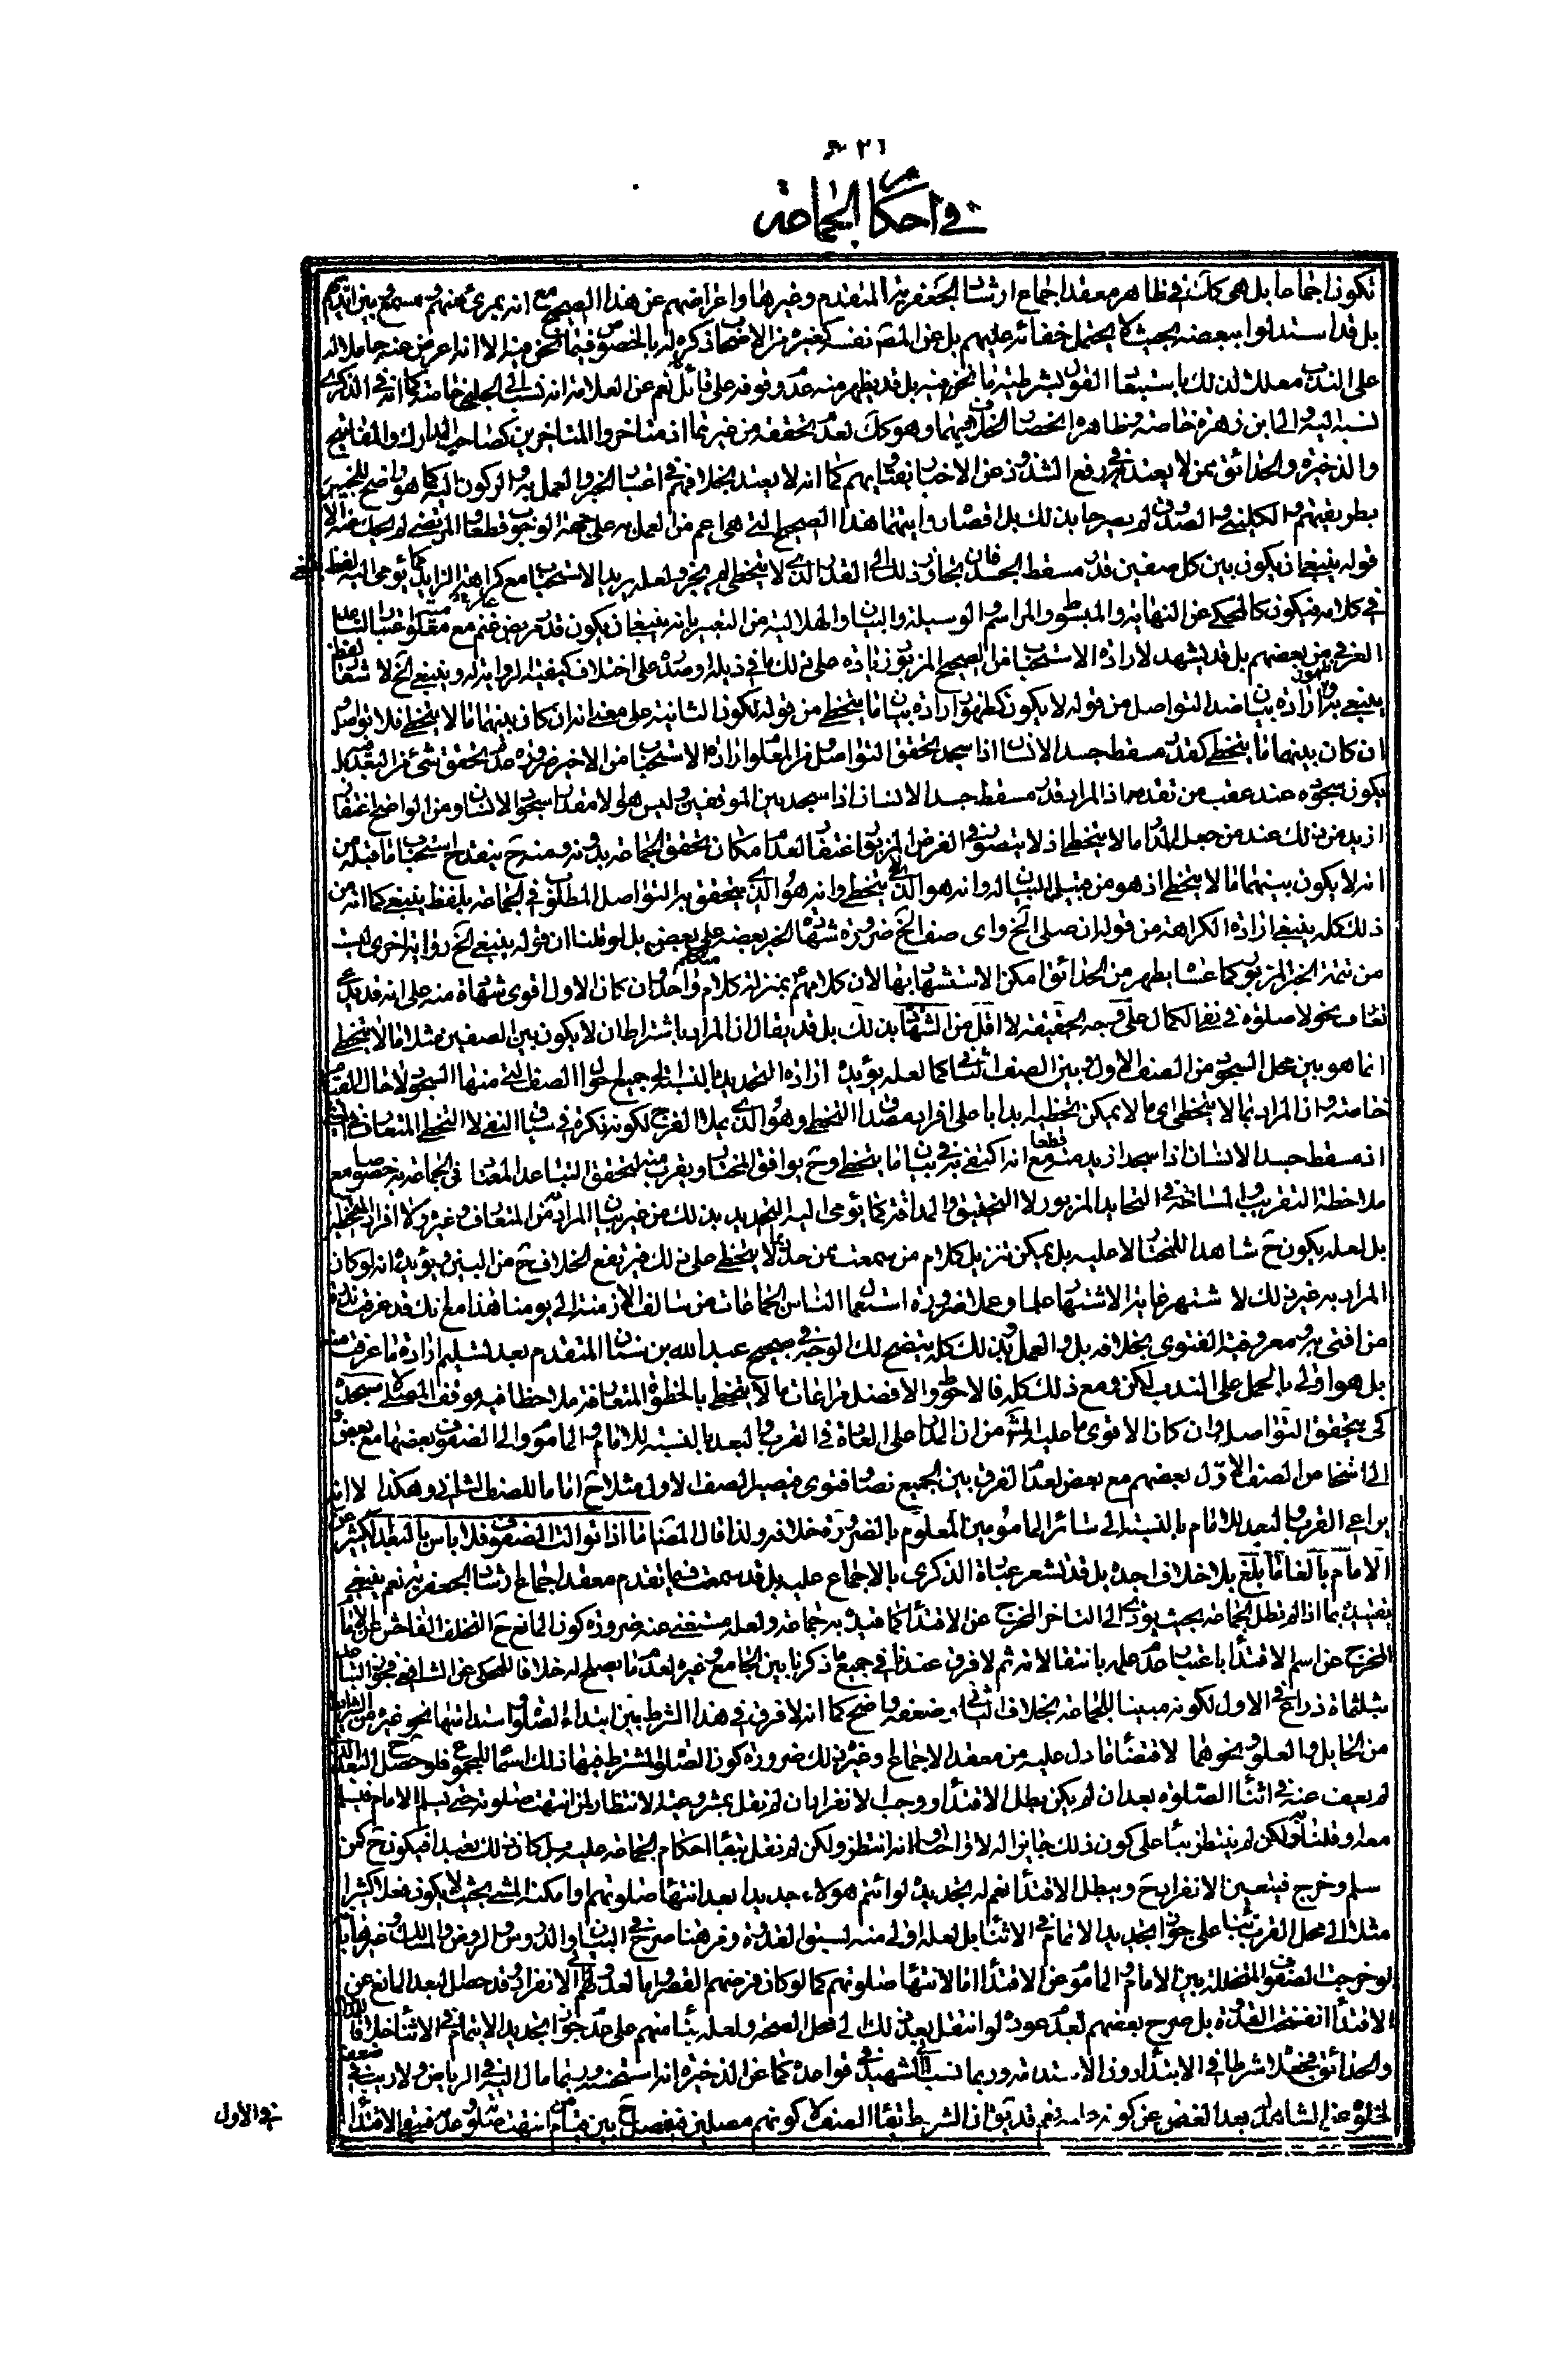 في احكام الجماعة
تكون اجماعا بل هي كانت في ظاهر معقد اجماع ارشاد الجعفرية المتقدم وغيرها واعراضهم عن هذا الصحيح مع انه بمرئى منهم ومسمع بين ايديهم
بل قد استدلوا ببعضه بحيث لا يحتمل خفائه عليهم بل عن المصنف نفسه كغيره من الاصحاب ذكره له بالخصوص فيما نحن فيه الا انه اعرض عنه حاملا له
على الندب معللا لذلك باستبعاد القول بشرطية ما نحن فيه بل قد يظهر منه عدم وقوفه على قائل نعم عن العلامة انه نسب الى الحلبي خاصة كما انه في الذكرى
نسبه اليه والى ابن زهرة خاصة وظاهره انحصار الخلاف فيهما وهو كك لعدم تحققه من غيرهما اذ متاخروا المتاخرين كصاحب المدارك والمفاتيح
والذخيرة والحدائق ممن لا يعتد في رفع الشذوذ عن الاخبار بفتياهم كما انه لا يعتد بخلافهم في اعتبار الخبر والعمل به والركون اليه كما هو واضح للخبير
بطريقتهم والكليني والصدوق لم يصرحا بذلك بل اقصاه روايتهما هذا الصحيح التي هي اعم من العمل به على جهة الوجوب قطعا والمرتضى لم يحك عنه الا
قوله ينبغي ان يكون بين كل صفين قدر مسقط الجسد فان تجاوز ذلك الى القدر الذي لا يتخطى لم يجز ولعله يريد الاستحباب مع كراهة الزايد كما يومي اليه لفظ ينبغي
في كلامه فيكون كالمحكي عن النهاية والمبسوط والمراسم والوسيلة والبيان والهلالية من التعبير بانه ينبغي ان يكون قدر مربض عنز مع
العرفي من بعضهم بل قد يشهد لارادة الاستحباب من الصحيح المزبور زيادة على ذلك ما في ذيله وصدره على اختلاف كيفية الروايته له وينبغي الخ لاشعار لفظ
ينبغي به وظهور ارادة بيان ضد التواصل من قوله لا يكون كظهور ارادة بيان ما يتخطى من قوله يكون الثانية على معنى انه ان كان بينهما ما لا يتخطى فلا تواصل
ان كان بينهما ما يتخطى كقدر مسقط جسد الانسان اذا سجد تحقق التواصل فالمعلوم ارادة الاستحباب من الاخير ضرورة عدم تحقق شئ من البعد
يكون سجوده عند عقب من تقدمه اذ المراد قدر مسقط جسد الانسان اذا سجد بين الموقفين وليس هو الا مقدار سجود الانسان ومن الواضح اغتفار
ازيد من ذلك عند من جعل المدار ما لا يتخطى اذ لا يتصور في الفرض المزبور اغتفار لعدم امكان تحقق الجماعة بدونه ومنه ح ينقدح استحباب ما قبله من
انه لا يكون بينهما ما لا يتخطى اذ هو من قبيل البيان له وانه هو الذي يتخطى وانه هو الذي يتحقق به التواصل المطلوب في الجماعة بلفظ ينبغي كما انه من
ذلك كله ينبغي ارادة الكراهة من قوله ان صلى الخ واى صف الخ ضرورة شهادة الخبر بعضه على بعض بل لو قلنا ان قوله ينبغي الخ رواية اخرى ليست
من تتمة الخبر المزبور كما عساه يظهر من الحدائق امكن الاستشهاد بها لان كلامهم بمنزلة كلام متكلم واحد وان كان الاول اقوى شهادة منه على انه قد يدعى
تعارف نحو لا صلوة في نفي الكمال على وجه الحقيقة لا اقل من الشهادة بذلك بل قد يقال ان المراد باشتراط ان لا يكون بين الصفين مثلا ما لا يتخطى
انما هو بين محل السجود من الصف الاول وبين الصف الثاني كما لعله يؤيده ارادة التحديد بالنسبة الى جميع احوال الصف التي منها السجود لا حال القيام
خاصة وان المراد بما لا يتخطى اى ما لا يمكن تخطيه ابدا باعلى افراد مصداق التخطي وهو الذي يملأ الفرج لكونه نكرة في سياق النفي لا التخطي المتعارف
اذ مسقط جسد الانسان اذا سجد ازيد منه قطعا مع انه اكتفى به في بيان ما يتخطى وح يوافق المختار ويقرب منه لتحقق التباعد المعتاد في الجماعة به خصوصا مع
ملاحظة التقريب والمسامحة في التحديد المزبور لا التحقيق والمداقة كما يومي اليه التحديد بذلك من غير بيان المراد من المتعارف وغيره ولا افراد التخطي
بل لعله يكون ح شاهدا للمختار لا عليه بل يمكن تنزيل كلام من سمعت ممن حد بما لا يتخطى على ذلك فيرتفع الخلاف ح من البين ويؤيده انه لو كان
المراد به غير ذلك لاشتهر غاية الاشتهار علما وعملا ضرورة استعمال الناس الجماعات من سالف الازمنة الى يومنا هذا مع انك قد عرفت ندرة
من افتى به ومعروفية الفتوى بخلافه بل والعمل وبذلك كله يتضح لك الوجه في صحيح عبد الله بن سنان المتقدم بعد تسليم ارادة ما عرفت منه
بل هو اولى بالحمل على الندب لكن ومع ذلك كله فالاحوط والافضل مراعات ما لا يتخطى بالخطوة المتعارفة ملاحظا فيه موقف المصلي لا مسجده
كي يتحقق التواصل وان كان الاقوى ما عليه المشهور من ان المدار على العادة في القرب والبعد بالنسبة للامام والماموم والى الصفوف بعضها مع بعض
الى اشخاص الصف الاول بعضهم مع بعض لعدم الفرق بين الجميع نصا وفتوى فيصير الصف الاول مثلا ح اماما للصف الثاني وهكذا لا انه
يراعى القرب والبعد للامام بالنسبة الى سائر المامومين المعلوم بالضرورة خلافه ولذا قال المصنف اما اذا توالت الصفوف فلا باس بالبعد الكثير عن
الامام بالغا ما بلغ بلا خلاف اجده بل قد تشعر عبارة الذكرى بالاجماع عليه بل قد سمعت فيما تقدم معقد اجماع ارشاد الجعفرية نعم ينبغي
تقييده بما اذا لم تطل الجماعة بحيث يؤدى الى التاخر المخرج عن الاقتداء كما قيده به جماعة ولعله مستغنى عنه ضرورة كون المانع ح التخلف الفاحش عن الامام
المخرج عن اسم الاقتداء باعتبار عدم علمه بانتقالاته ثم لا فرق عندنا في جميع ما ذكرنا بين الجامع وغيره لعدم ما يصلح له خلافا للمحكي عن الشافعي فجوز التباعد
بثلثمائة ذراع في الاول لكونه مبينا للجماعة بخلاف الثاني وضعفه واضح كما انه لا فرق في هذا الشرط بين ابتداء الصلوة واستدامتها نحو غيره من الشرايط
من الحايل والعلو ونحوهما لاقتضاء ما دل عليه من معقد الاجماع وغير ذلك ضرورة كون الصلوة المشترط فيها ذلك اسما للمجموع فلو حصل ح البعد الذي
لم يعف عنه في اثناء الصلوة بعد ان لم يكن بطل الاقتداء ووجب الانفراد ان لم نقل بمشروعية الانتظار لمن انتهت صلوته حتى يسلم الامام فيسلم
معه او قلنا به ولكن لم ينتظر بناء على كون ذلك جايزا له لا واجبا او انه انتظر ولكن لم نقل ببقاء احكام الجماعة عليه بل كان ذلك تعبدا فيكون ح كمن
سلم وخرج فيتعين الانفراد ح ويبطل الاقتداء نعم له تجديده لو ائتم هولاء جديدا بعد انتهاء صلوتهم او امكنه المشي بحيث لا يكون فعلا كثيرا
مثلا الى محل القرب بناء على جواز تجديد الائتمام في الاثناء بل لعله اولى منه لسبق القدوة ومن هنا صرح في البيان والدروس والروض والمسالك وغيرها بانه
لو خرجت الصفوف المتخللة بين الامام والماموم عن الاقتداء اما لانتهاء صلوتهم كما لو كان فرضهم القصر او لعدولهم الى الانفراد وقد حصل البعد المانع عن
الاقتداء انفسخت القدوة بل صرح بعضهم بعدم عوده لو انتقل بعد ذلك الى محل الصحة ولعله بناء منهم على عدم جواز تجديد الايتمام في الاثناء خلافا للمدارك
والحدائق فجعلاه شرطا في الابتداء دون الاستدامة وربما نسب الى الشهيد في قواعده كما عن الذخيرة انه استحسنه وربما مال اليه في الرياض ولا ريب في ضعفه
لخلوه عن الشاهد له بعد الغض عن كونه نعم قد يق ان الشرط بقاء الصف لا كونهم مصلين فيفصل ح بين قيام من انتهت صلوته وعدمه فيبقى الاقتداء
في الاول